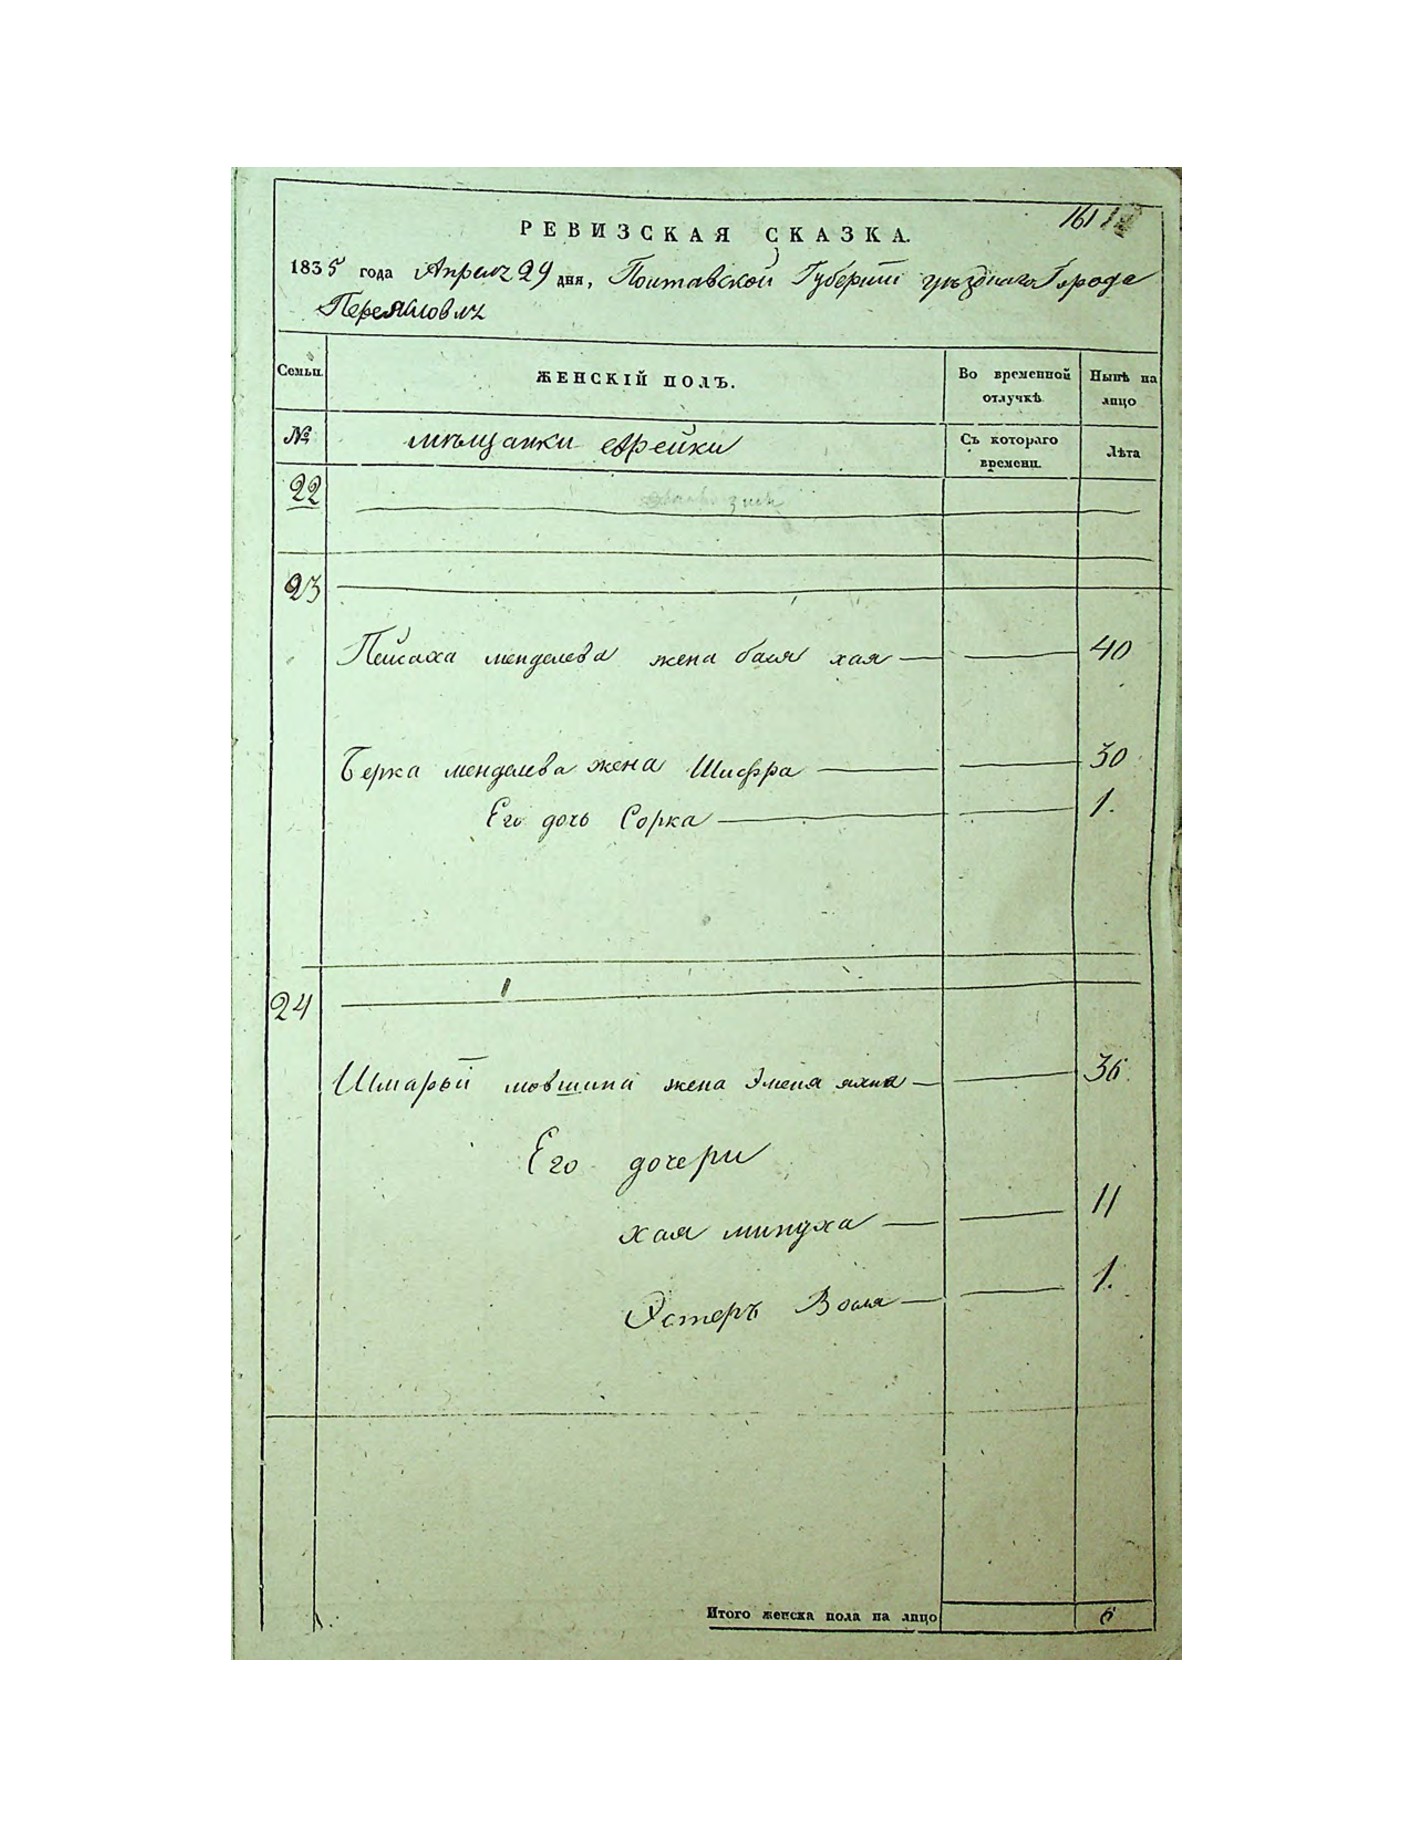 161
РЕВИЗСКАЯ СКАЗКА.
1835 года Апреля 29 дня, Полтавской Губернии уезднаго Города
Переяслова
Семьи. ЖЕНСКІЙ ПОЛЪ. Во временной отлучкѣ Нынѣ на лицо
№ мещанки еврейки Съ котораго времени. Лѣта
22
23
Пейсаха менделева жена бася хая 40
Берка менделева жена Шифра 30
Его дочь Сорка 1.
24
Шмарый мовшина жена яхна 36
Его дочери
хая минуха 11
Эстеръ 1.
Итого женска пола на лицо 6